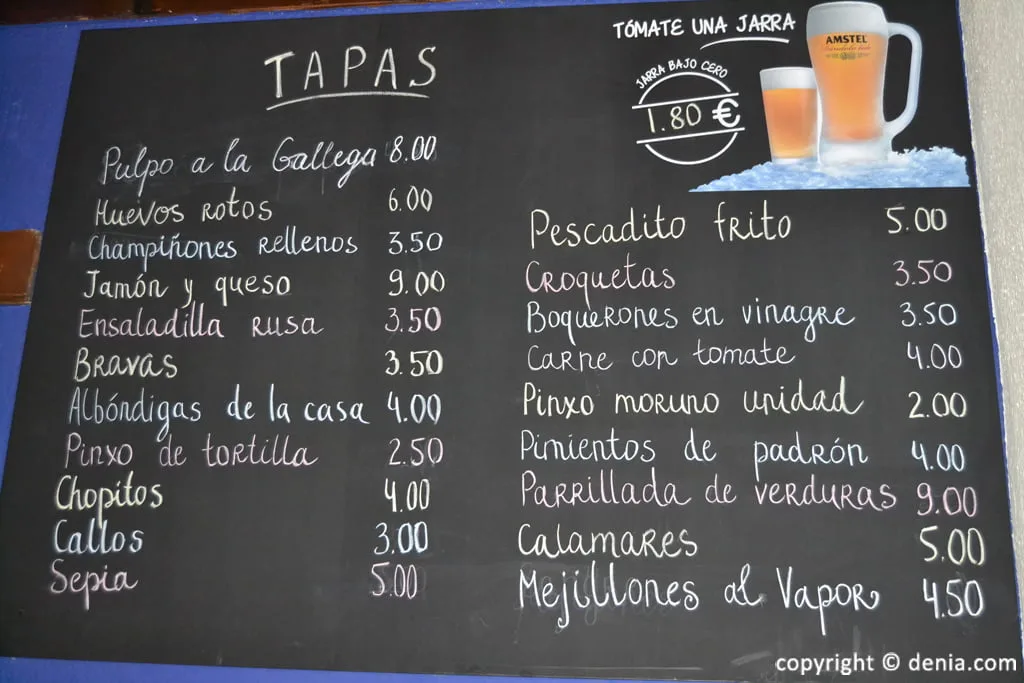 TAPAS
Pulpo a la Gallega 8.00
Huevos rotos 6.00
Champiñones rellenos 3.50
Jamón y queso 9.00
Ensaladilla rusa 3.50
Bravas 3.50
Albóndigas de la casa 4.00
Pinxo de tortilla 2.50
Chopitos 4.00
Callos 3.00
Sepia 5.00
TÓMATE UNA JARRA
JARRA BAJO CERO
1.80 €
AMSTEL
Pescadito frito 5.00
Croquetas 3.50
Boquerones en vinagre 3.50
Carne con tomate 4.00
Pinxo moruno unidad 2.00
Pimientos de padrón 4.00
Parrillada de verduras 9.00
Calamares 5.00
Mejillones al Vapor 4.50
copyright © denia.com